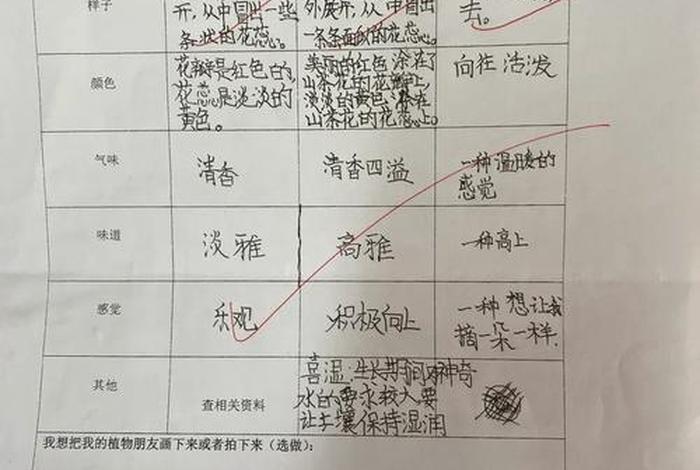 样子
开,从中冒出一些
条状的花蕊。
外展开,从中冒出
一条条面纹的花蕊。
去。
颜色
花瓣是红色的,
花蕊是淡淡的
黄色。
美丽的红色涂在了
山茶花的花瓣上,
淡淡的黄色涂在
山茶花的花蕊上。
向往 活泼
气味
清香
清香四溢
一种温暖的
感觉
味道
淡雅
高雅
一种高上
感觉
乐观
积极向上
一种想让我
摘一朵一样.
其他
查相关资料
喜温:生长期间对
水的要求较大要
让土壤保持湿润
神奇
我想把我的植物朋友画下来或者拍下来(选做):